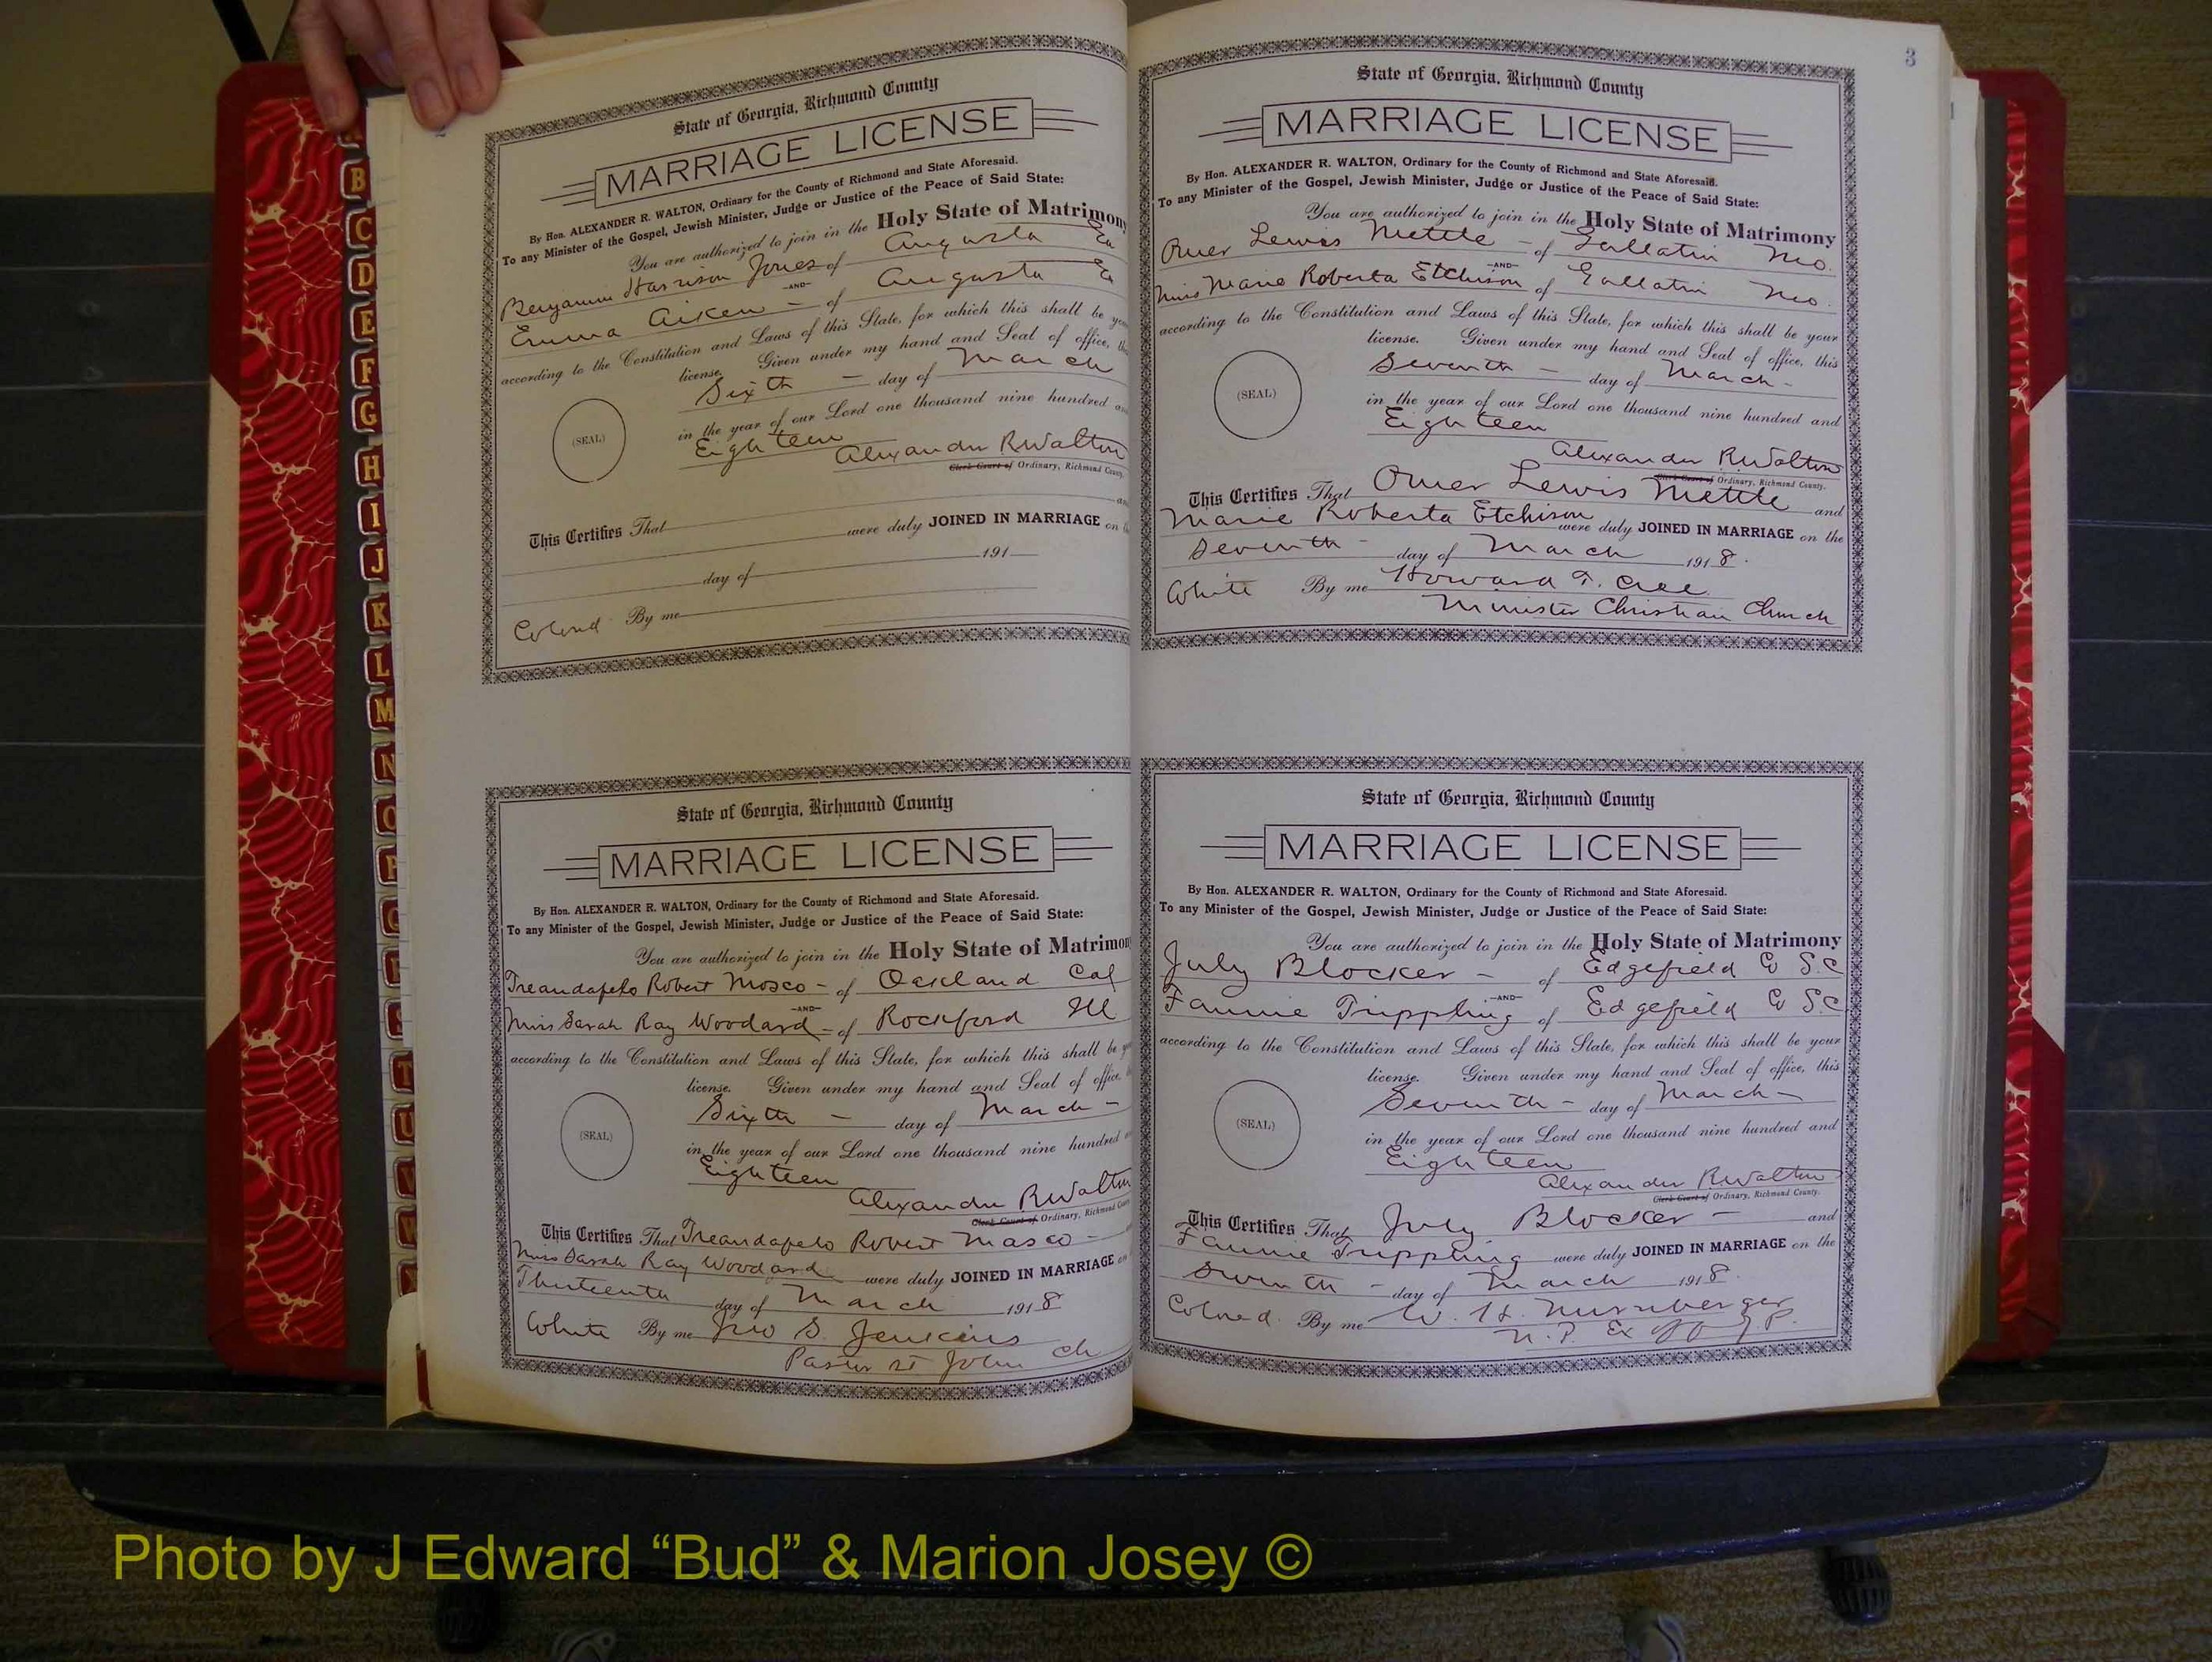 State of Georgia, Richmond County
MARRIAGE LICENSE
By Hon. ALEXANDER R. WALTON, Ordinary for the County of Richmond and State Aforesaid.
To any Minister of the Gospel, Jewish Minister, Judge or Justice of the Peace of Said State:
You are authorized to join in the Holy State of Matrimony
Benjamin Harrison Jones of Augusta Ga
-AND-
Emma Aiken - of Augusta Ga
according to the Constitution and Laws of this State, for which this shall be
license. Given under my hand and Seal of office,
Sixth - day of March
(SEAL)
in the year of our Lord one thousand nine hundred
Eighteen
Alexander R Walton
Clerk Court of Ordinary, Richmond County.
This Certifies That
were duly JOINED IN MARRIAGE on
day of 191
Colored By me
State of Georgia, Richmond County
MARRIAGE LICENSE
By Hon. ALEXANDER R. WALTON, Ordinary for the County of Richmond and State Aforesaid.
To any Minister of the Gospel, Jewish Minister, Judge or Justice of the Peace of Said State:
You are authorized to join in the Holy State of Matrimony
Treandafelo Robert Mosco - of Oakland Cal
-AND-
Miss Sarah Ray Woodard - of Rockford Ill
according to the Constitution and Laws of this State, for which this shall be
license. Given under my hand and Seal of office,
Sixth - day of March -
(SEAL)
in the year of our Lord one thousand nine hundred
Eighteen
Alexander R Walton
Clerk Court of Ordinary, Richmond County
This Certifies That Treandafelo Robert Masco -
Miss Sarah Ray Woodard were duly JOINED IN MARRIAGE on
Thirteenth day of March 1918
White By me Jno S. Jenkins
Pastor St John Ch
3
State of Georgia, Richmond County
MARRIAGE LICENSE
By Hon. ALEXANDER R. WALTON, Ordinary for the County of Richmond and State Aforesaid.
To any Minister of the Gospel, Jewish Minister, Judge or Justice of the Peace of Said State:
You are authorized to join in the Holy State of Matrimony
Omer Lewis Nettle - of Gallatin Mo.
-AND-
Miss Marie Roberta Etchison of Gallatin Mo.
according to the Constitution and Laws of this State, for which this shall be your
license. Given under my hand and Seal of office, this
Seventh - day of March -
(SEAL)
in the year of our Lord one thousand nine hundred and
Eighteen
Alexander R Walton
Clerk Court of Ordinary, Richmond County.
This Certifies That Omer Lewis Nettle and
Marie Roberta Etchison were duly JOINED IN MARRIAGE on the
Seventh - day of March 1918.
White By me Howard T. Cree
Minister Christian Church
State of Georgia, Richmond County
MARRIAGE LICENSE
By Hon. ALEXANDER R. WALTON, Ordinary for the County of Richmond and State Aforesaid.
To any Minister of the Gospel, Jewish Minister, Judge or Justice of the Peace of Said State:
You are authorized to join in the Holy State of Matrimony
July Blocker - of Edgefield Co S.C
-AND-
Fannie Trippling of Edgefield Co S.C
according to the Constitution and Laws of this State, for which this shall be your
license. Given under my hand and Seal of office, this
Seventh - day of March -
(SEAL)
in the year of our Lord one thousand nine hundred and
Eighteen
Alexander R Walton
Clerk Court of Ordinary, Richmond County.
This Certifies That July Blocker - and
Fannie Trippling were duly JOINED IN MARRIAGE on the
Seventh - day of March 1918.
Colored. By me W. H. Nurnberger
N.P. Ex Off J P.
B
C
D
E
F
G
H
I
J
K
L
M
N
O
P
Q
R
S
T
U
V
W
Photo by J Edward “Bud” & Marion Josey ©